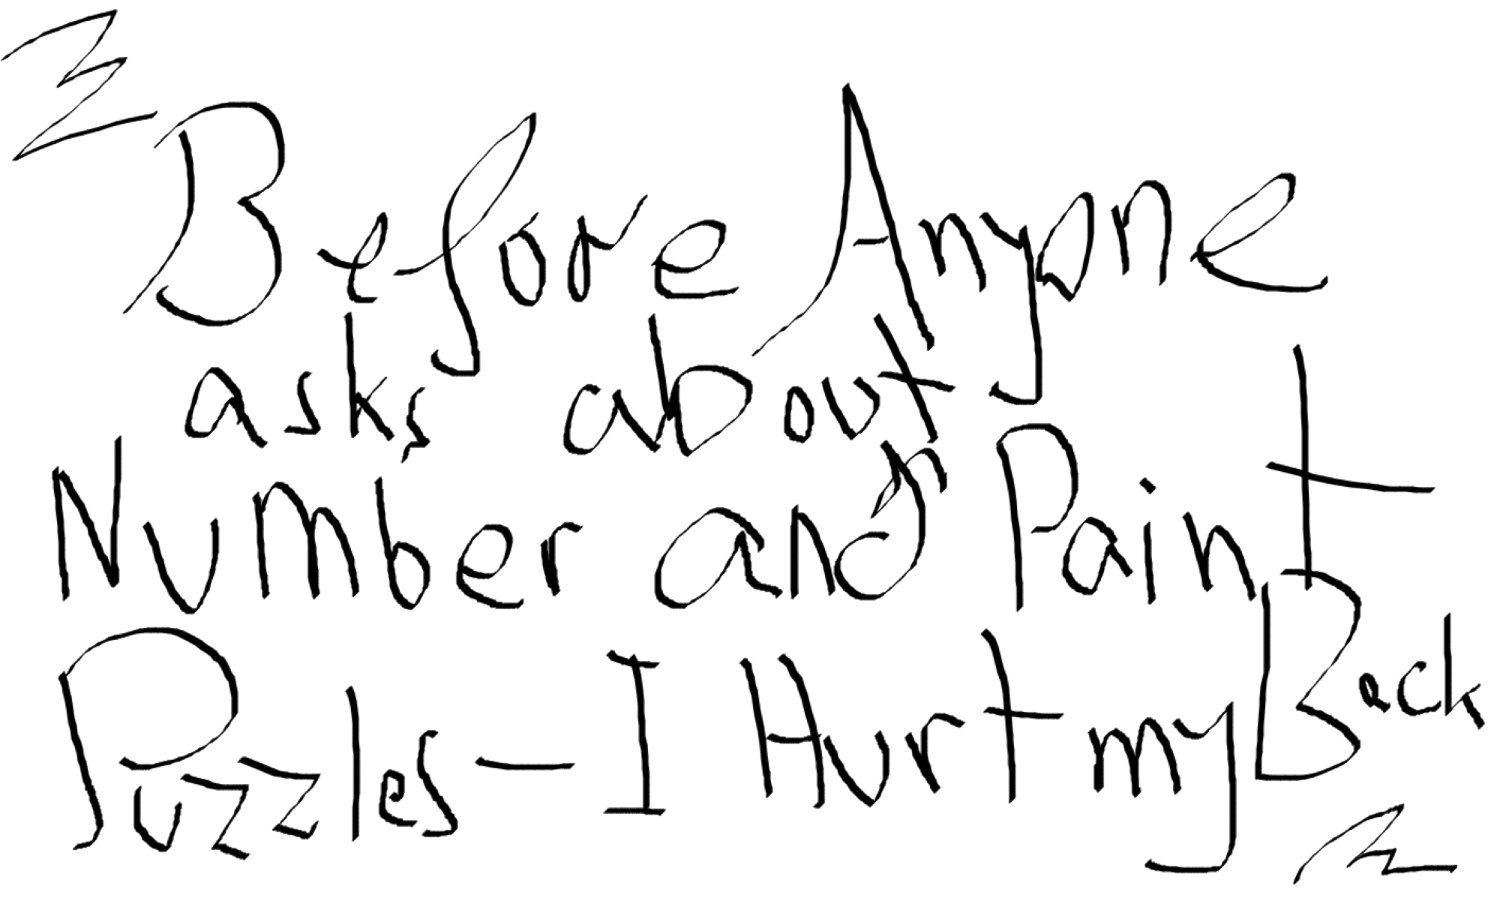 Before Anyone
asks about
Number and Paint
Puzzles - I Hurt my Back